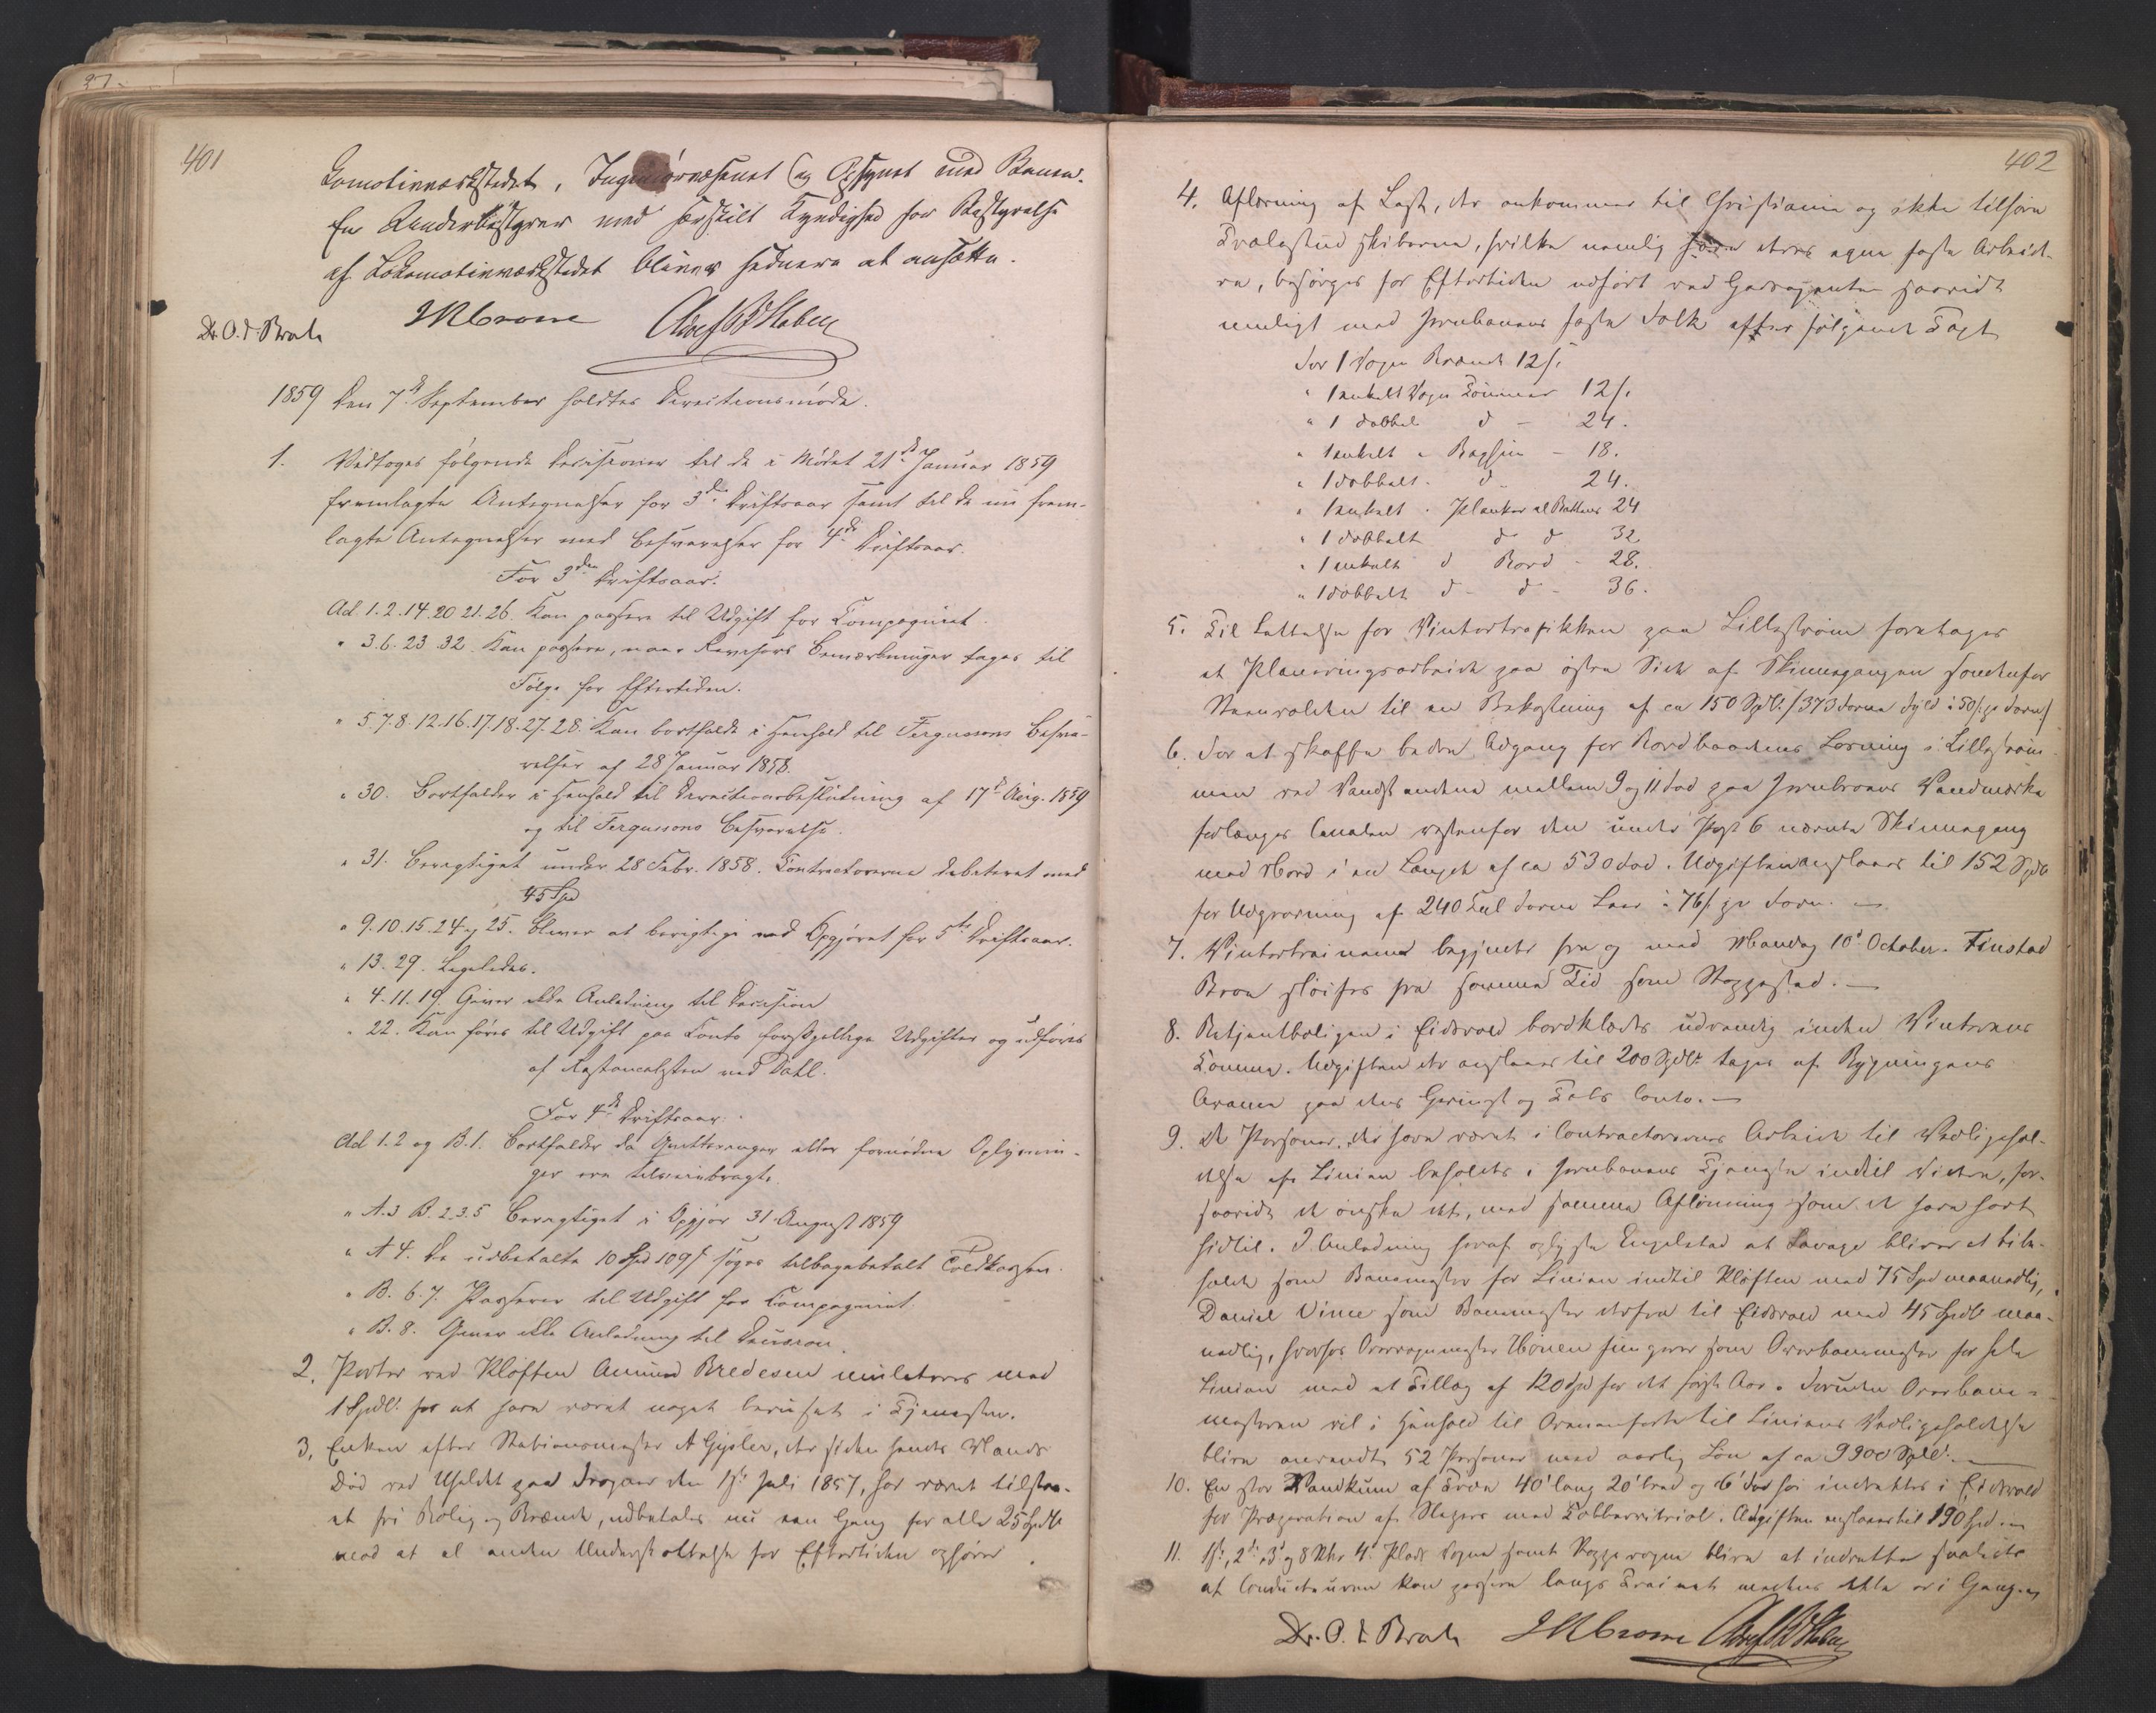 401
Locomotivværkstedet, Ingeniørvæsenet og Opsynet med Banen.
En Underbestyrer med særskilt Kyndighed for Bestyrelse
af Lokomotivværkstedet bliver sednere at ansætte.
Dr. O. J. Broch JNCrowe
1859 Den 7de September holdtes Directionsmøde.
1. Vedtoges følgende Decisioner til de i Mødet 21de Januar 1859
fremlagte Antegnelser for 3die Driftsaar samt til de nu frem-
lagte Antegnelser med Besvarelser for 4de Driftsaar.
For 3die Driftsaar.
Ad. 1. 2. 14. 20 21. 26. Kan passere til Udgift for Compagniet.
" 3. 6. 23. 32. Kan passere, naar Revisors Bemærkninger tages til
Følge for Eftertiden.
" 5. 7. 8. 12. 16. 17. 18. 27. 28. Kan bortfalde i Henhold til Fergussons Besva-
relser af 28 Januar 1858.
" 30. Bortfalder i Henhold til Directionsbeslutning af 17de Aug. 1859
og til Fergussons Besvarelse.
" 31. Berigtiget under 28 Febr. 1858. Contractorerne debiteret med
45 Spd
" 9. 10. 15. 24 og 25. Bliver at berigtige ved Opgjøret for 5te Driftsaar.
" 13. 29. Ligeledes.
" 4. 11. 19. Giver ikke Anledning til Decision
" 22. Kan føres til Udgift paa Conto forskjellige Udgifter og udføres
af Restancelisten ved Dahl.
For 4de Driftsaar.
Ad 1. 2 og B. 1. Bortfalder da Qvitteringer eller fornødne Oplysnin-
ger ere tilveiebragte.
" A. 3 B. 2. 3. 5 Berigtiget i Opgjør 31 August 1859
" A 4. De udbetalte 10 Spd 109 s søges tilbagebetalt Toldkassen.
" B. 6. 7. Passerer til Udgift for Compagniet.
" B. 8. Giver ikke Anledning til Decision.
2. Porter ved Kløften Amund Bredesen mulcteres med
1 Spdlr for at have været noget beruset i Tjenesten.
3. Enken efter Stationsmester A Gysler, der siden hendes Mands
Død ved Uheldet paa Frogner den 1ste Juli 1857, har været tilstaa-
et fri Bolig og Brænde, udbetales nu een Gang for alle 25 Spdlr
mod at al anden Understøttelse for Eftertiden ophører.
402
4. Aflæsning af Last, der ankommer til Christiania og ikke tilhører
Trælastudskiberne, hvilke nemlig have deres egne faste Arbeid-
ere, besørges for Eftertiden udført ved saavidt
muligt med Jernbanens faste Folk efter følgende Taxt
For 1 Vogn Brænde 12 s.
" 1 enkelt Vogn Tømmer 12 s.
" 1 dobbel d - 24.
" 1 enkelt " Baghun - 18.
" 1 dobbelt - d - 24.
" 1 enkelt " Planker el Battens 24
" 1 dobbelt d d 32
" 1 enkelt d Bord - 28.
" 1 dobbelt d - d - 36.
5. Til Lettelse for Vintertrafikken paa Lillestrøm foretages
et Planeringsarbeide paa østre Side af Skinnegangen søndenfor
til en Bekostning af ca 150 Spdlr /373 Favne Fyld à 50 s. pr Favn/
6. For at skaffe bedre Adgang for Bordbaadenes Losning i Lillestrøm-
men ved Vandstandene mellem 9 og 11 Fod paa Jernbroens Vandmærke
forlænges Canalen vestenfor den under Post 6 nævnte Skinnegang
mod Nord i en Længde af ca 530 Fod. Udgiften anslaaes til 152 Spdlr
for Udgravning af 240 Cub Favne Leer à 76 s. pr Favn. —
7. Vintertrainene begynder fra og med Mandag 10de October. Finstad
Broen sløifes fra samme Tid som Stoppested. —
8. Betjentboligen i Eidsvold bordklædes udvendig inden Vinterens
Komme. Udgiften der anslaaes til 200 Spdlr tages af Bygningens
Aranna paa dens Gevinst og Tabs Conto. —
9. De Personer, der have været i Contractorernes Arbeide til Vedligehol-
delse af Linien beholdes i Jernbanens Tjeneste indtil videre, for-
saavidt de ønske det, med samme Aflønning som de have havt
hidtil. I Anledning heraf oplyste Engelstad at Savage bliver at bibe-
holde som Banemester for Linien indtil Kløften med 75 Spd maanedlig,
Daniel Vince som Banemester derfra til Eidsvold med 45 Spdlr maa-
nedlig, hvorhos Overvognmester Hönen fungerer som Overbanemester for hele
Linien med et Tillæg af 120 Spd for det første Aar. Foruden Overbane-
mesteren vil i Henhold til Ovenanførte til Liniens Vedligeholdelse
blive anvendt 52 Personer med aarlig Løn af ca 9900 Spdlr. —
10. En stor Vandkum af Træe 40' lang 20' bred og 6' høi indrettes i Eidsvold
for Præparation af Slepers med Kobbervitriol. Udgiften anslaaes til 190 Spd. —
11. 1ste, 2de, 3de og 8 Stkr 4. Plads Vogne samt Stoppevogne blive at indrette saaledes
at Conducteuren kan passere langs Trainet medens dette er i Gang. —
Dr. O. J. Broch JNCrowe